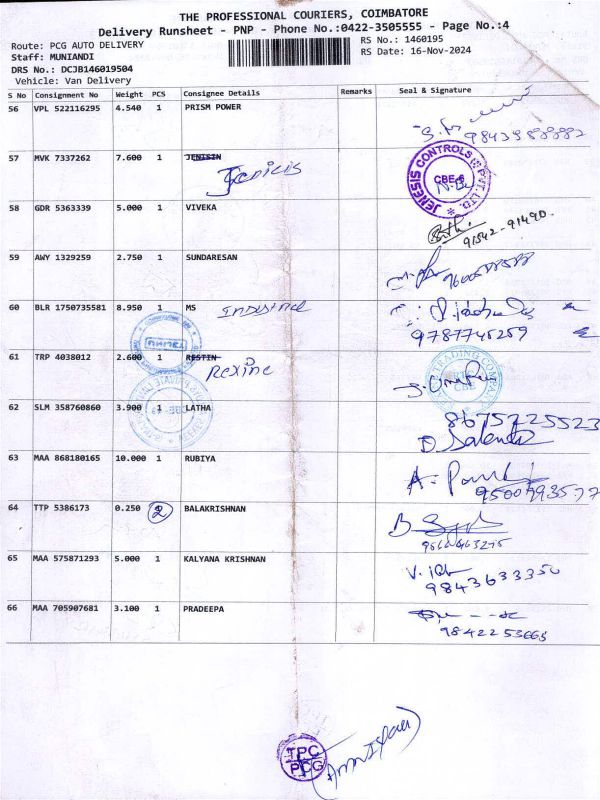 THE PROFESSIONAL COURIERS, COIMBATORE
Delivery Runsheet - PNP - Phone No.:0422-3505555 - Page No.:4
Route: PCG AUTO DELIVERY RS No.: 1460195
Staff: MUNIANDI RS Date: 16-Nov-2024
DRS No.: DCJB146019504
Vehicle: Van Delivery
S No Consignment No Weight PCS Consignee Details Remarks Seal & Signature
56 VPL 522116295 4.540 1 PRISM POWER
57 MVK 7337262 7.600 1 JENISIN
JENESIS CONTROLS (I) PVT. LTD. CBE-6
58 GDR 5363339 5.000 1 VIVEKA
91542-91490
59 AWY 1329259 2.750 1 SUNDARESAN
60 BLR 1750735581 8.950 1 MS Industrial
9787745259
61 TRP 4038012 2.600 1 RESTIN
Rexine
TRADING COMPANY
CBE
62 SLM 358760860 3.900 1 LATHA
8675225523
63 MAA 868180165 10.000 1 RUBIYA
64 TTP 5386173 0.250 2 BALAKRISHNAN
65 MAA 575871293 5.000 1 KALYANA KRISHNAN
9843633350
66 MAA 705907681 3.100 1 PRADEEPA
9842253665
TPC
PCG